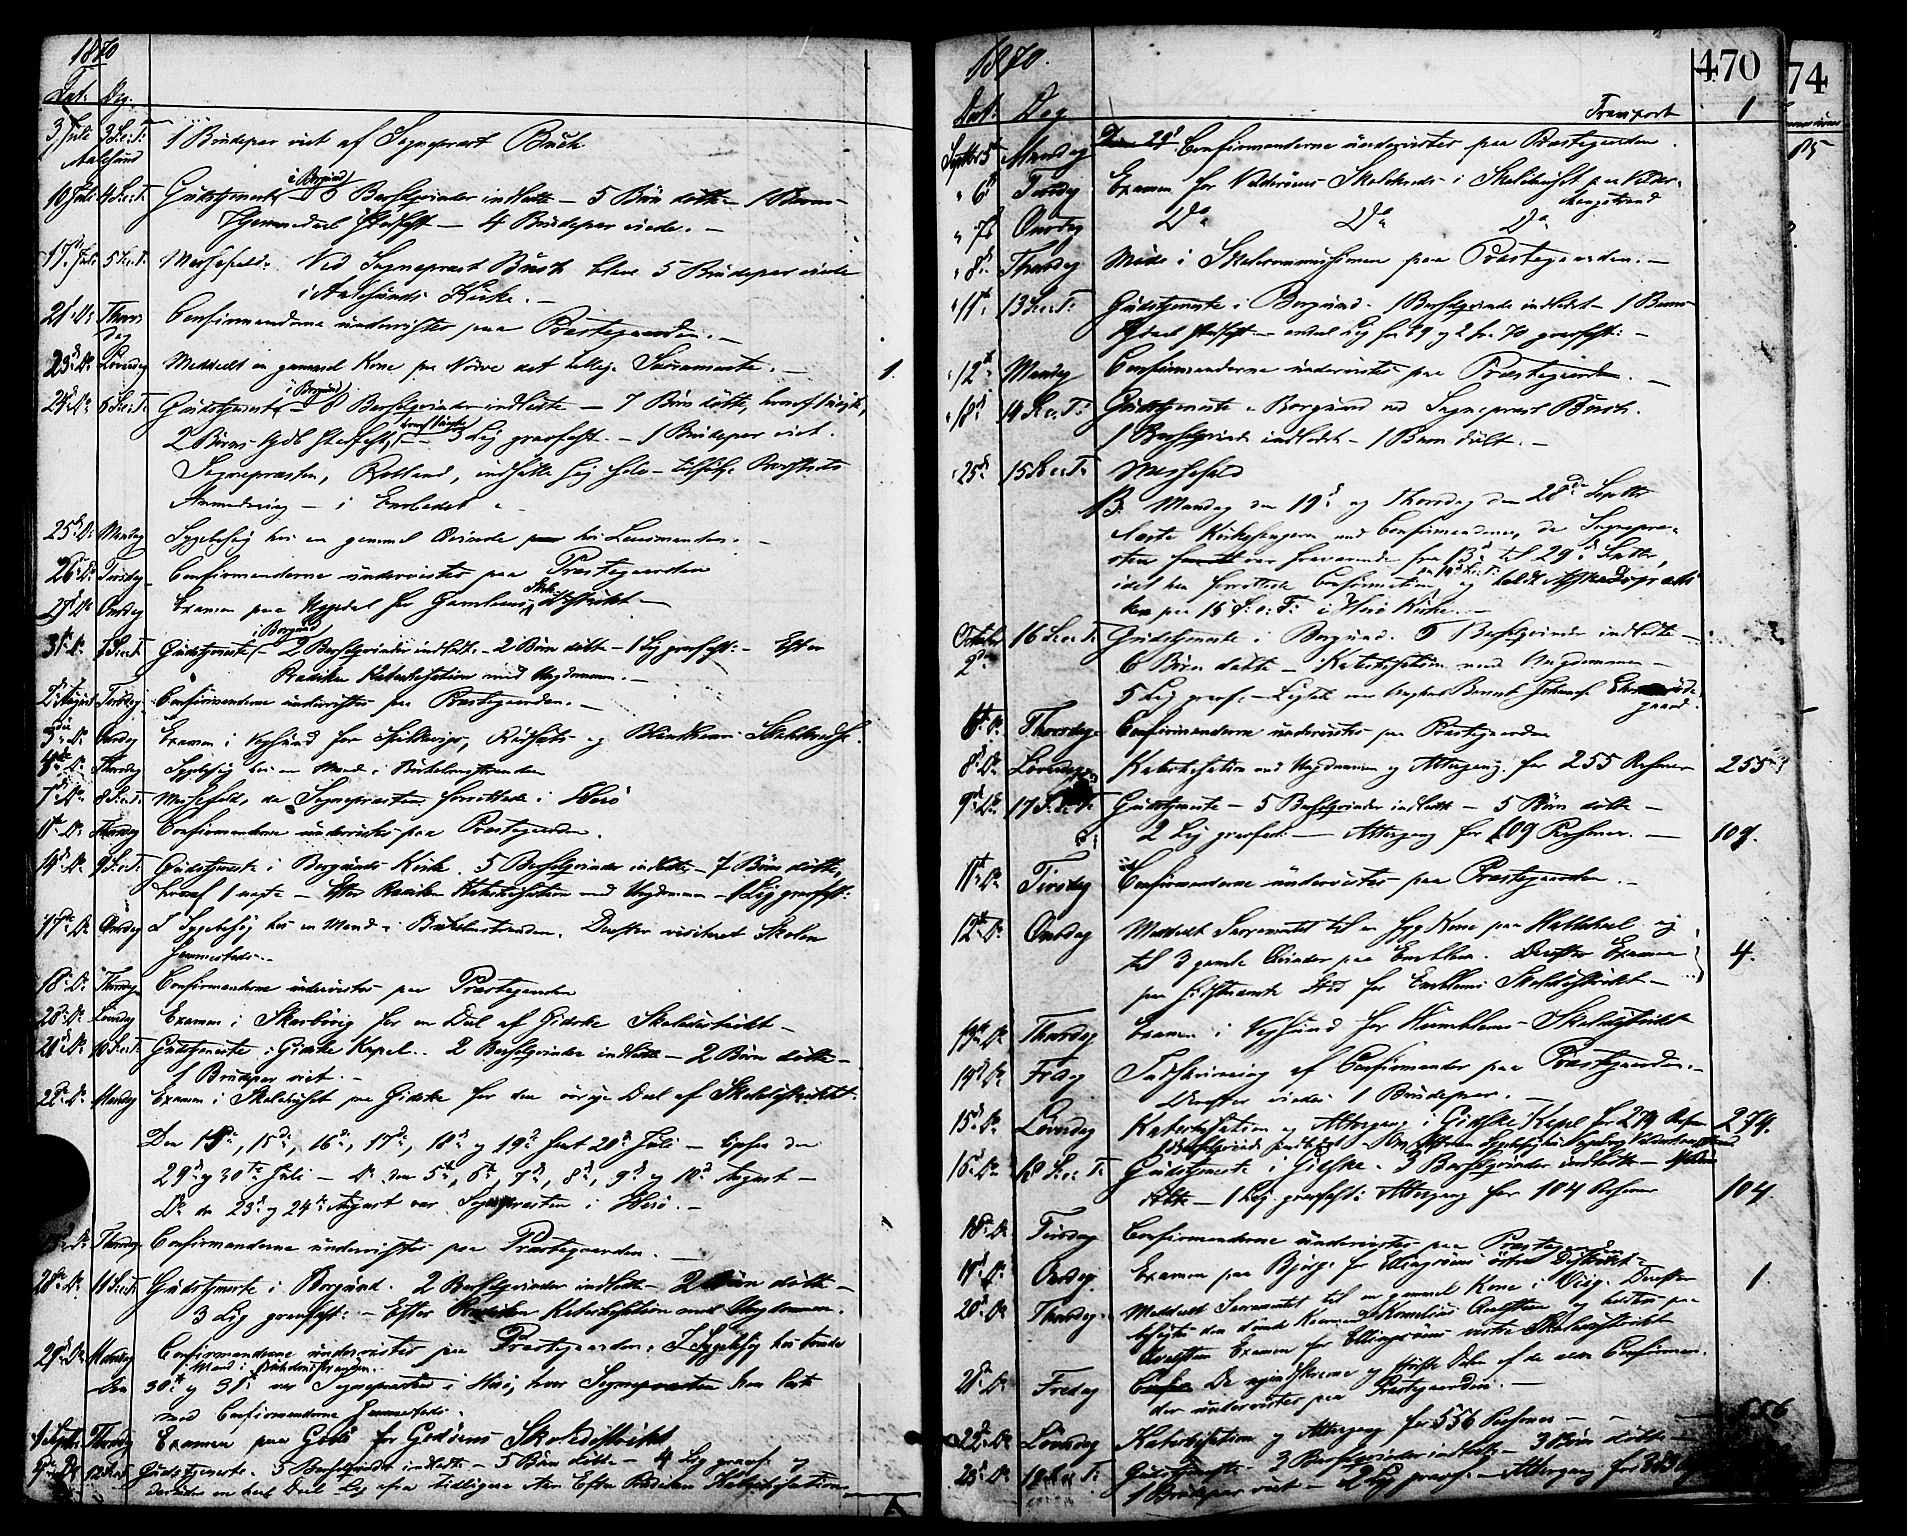 1870
Dat: Dag.
3 Juli 3 S.e.T: 1 Brudepar viet af Sognepræst Buch
Aalesund
i Borgund
10 Juli 4 S.e.T. Gudstjeneste 3 Barselqvinder indledte – 5 Børn døbte – 1 Barns
Hjemmedaab stadfæst – 4 Brudepar viede. –
17 Juli 5 S.e.T. Messefald. Ved Sognepræst Buch bleve 5 Brudepar viede
i Aalesunds Kirke. –
21 Do Thorsdag Confirmanderne undervistes paa Præstegaarden. –
23 Do Løverdag Meddeelt en gammel Kone paa Nørve det hellige Sacramente. – 1.
i Borgund
24 Do 6 S.e.T. Gudstjeneste 8 Barselqvinder indledte – 7 Børn døbte, hvoraf 1 uægte,
2 Børns Hjdb stadfæstet, – 3 Lig gravfæst. – 1 Brudepar viet.
Sognepræsten, indsatte sig selv – Provstens
Anmodning – i Embedet. –
25 Do Mandag Sygebesøg hos en gammel Qvinde hos Lensmanden. –
26 Do Tirsdag Confirmanderne undervistes paa Præstegaarden
27 Do Onsdag Examen paa for Skoledistrikt –
i Borgund
31 Do 7 S.e.T. Gudstjeneste – 2 Barselqvinder indledt. – 2 Børn døbte – 1 Lig gravfæst: – Efter
Prædiken Katechisation med Ungdommen. –
2 August Tirsdag Confirmanderne undervistes paa Præstegaarden. –
3 Do Onsdag Examen i Veghsund for Spilkevigs, og Skolekreds.
4 Do Thorsdag Sygebesøg hos en Mand i
7 Do 8 S.e.T. Messefald, da Sognepræsten forrettede i Herø
11 Do Thorsdag Confirmanderne undervistes paa Præstegaarden.
14 Do 9 S.e.T. Gudstjeneste i Borgunds Kirke. 5 Barselqvinder indledte – 7 Børn døbte,
hvoraf 1 uægte – Efter Prædiken Katechisation med Ungdommen – 1 Lig gravfæst:
17 Do Onsdag I Sygebesøg hos en Mand i Derefter visiteret Skolen
sammesteds. –
18 Do Thorsdag Confirmanderne undervistes paa Præstegaarden
20 Do Løverdag Examen i Skarbøvig for en Deel af Giske Skoledistrikt –
21 Do 10 S.e.T. Gudstjeneste i Giske Kapel. 2 Barselqvinder indledte – 2 Børn døbte –
1 Brudepar viet. –
22 Do Mandag Examen i Skolehuset paa Giske for den øvrige Deel af Skoledistriktet.
Den 15de, 16de, 17de, 18de og 19de samt 20de Juli –
29de og 30te Juli – Do den 5te, 6te, 7de, 8de, 9de og 10de August –
Do den 23de og 24de August var Sognepræsten i Herø. –
Do Thorsdag Confirmanderne undervistes paa Præstegaarden. –
28 Do 11 S.e.T. Gudstjeneste i Borgund. 2 Barselqvinder indledte – 2 Børn døbte –
3 Lig gravfæst: – Efter Prædiken Katechisation med Ungdommen.
29 Do Mandag Confirmanderne undervistes paa Præstegaarden. I Sygebesøg hos
Mand i
den 30te og 31te var Sognepræsten i Herø, hvor Sognepræsten
med Confirmanderne sammesteds.
1 Septbr Thorsdag Examen paa Godø for Godøens Skoledistrikt
4 Do 12 S.e.T. Gudstjeneste. 5 Barselqvinder indledte – 5 Børn døbte – 4 Lig gravf. og
desuden en heel Deel Lig fra tidligere Aar. Efter Prædiken Katechisation.
1870. 470 74
Dat: Dag Transport 1
Septbr 5 Mandag Confirmanderne undervistes paa Præstegaarden.
" 6 Tirsdag Examen for Valderøens Skolekreds i Skolehuset paa Valder-
haugstrand
" 7 Onsdag Do Do Do
" 8 Thorsdag Møde i Skolecommissionen paa Præstegaarden. –
" 11 13 S.e.T: Gudstjeneste i Borgund. 1 Barselqvinde indledet – 1 Barns
Hjdaab stadfæst – Lig fra 69 og 2 fra 70 gravfæst: –
" 12 Mandag Confirmanderne undervistes paa Præstegaarden. –
" 18 14 S.e.T: Gudstjeneste i Borgund ved Sognepræst Buch.
1 Barselqvinde indledet – 1 Barn døbt. –
" 25 15 S.e.T: Messefald
B. Mandag den 19de og Thorsdag den 28de Septbr
læste Kirkesangeren med Confirmanderne, da Sognepræ-
sten var fraværende fra 13de til 29de Septbr,
idet han forrettede Confirmation og holdt Afskedsprædi-
ken paa 15 S.e.T: i Herø Kirke. –
October 2den 16 S.e.T: Gudstjeneste i Borgund. 5 Barselqvinder indledte –
6 Børn døbte – Katechisation med Ungdommen –
5 Lig gravf. –
6 Do Thorsdag Confirmanderne undervistes paa Præstegaarden
8 Do Løverdag Katechisation med Ungdommen og Altergang for 255 Personer 255
9 Do 17 S.e.T: Gudstjeneste – 5 Barselqvinder indledte – 5 Børn døbte –
2 Lig gravfæst: – Altergang for 109 Personer. – 109.
11 Do Tirsdag Confirmanderne undervistes paa Præstegaarden. –
12 Do Onsdag Meddeelt Sacramentet til en syg Kone paa og
til 3 gamle Qvinder paa Emblem. Derefter Examen 4.
paa Sted for Emblems Skoledistrikt –
13 Do Thorsdag Examen i Veghsund for Skoledistrikt
14 Do Fredag Indskrivning af Confirmander paa Præstegaarden. –
Derefter viedes 1 Brudepar. –
15 Do Løverdag Katechisation og Altergang i Giske Kapel for 274 Personer 274.
16 Do 18 S.e.T: Gudstjeneste i Giske. 3 Barselqvinder indledte –
døbte – 1 Lig gravfæst: Altergang for 104 Personer 104
18 Do Tirsdag Confirmanderne undervistes paa Præstegaarden
19 Do Onsdag Examen paa Bjørge for Ellingsøens østre Distrikt –
20 Do Thorsdag Meddeelt Sacramentet til en gammel Kone i Viig. Derefter 1.
besøgte den og holdtes paa
Examen for Ellingsøens vestre Skoledistrikt
21 Do Fredag De nyindskrevne og første Delen af de ældre Confirman-
der undervistes paa Præstegaarden. –
22 Do Løverdag Katechisation og Altergang for 556 Personer – – – 556
23 Do 19 S.e.T: Gudstjeneste 3 Barselqvinder indledte – 3 Børn døbte –
1 Brudepar viet – 2 Lig gravf. – Altergang for